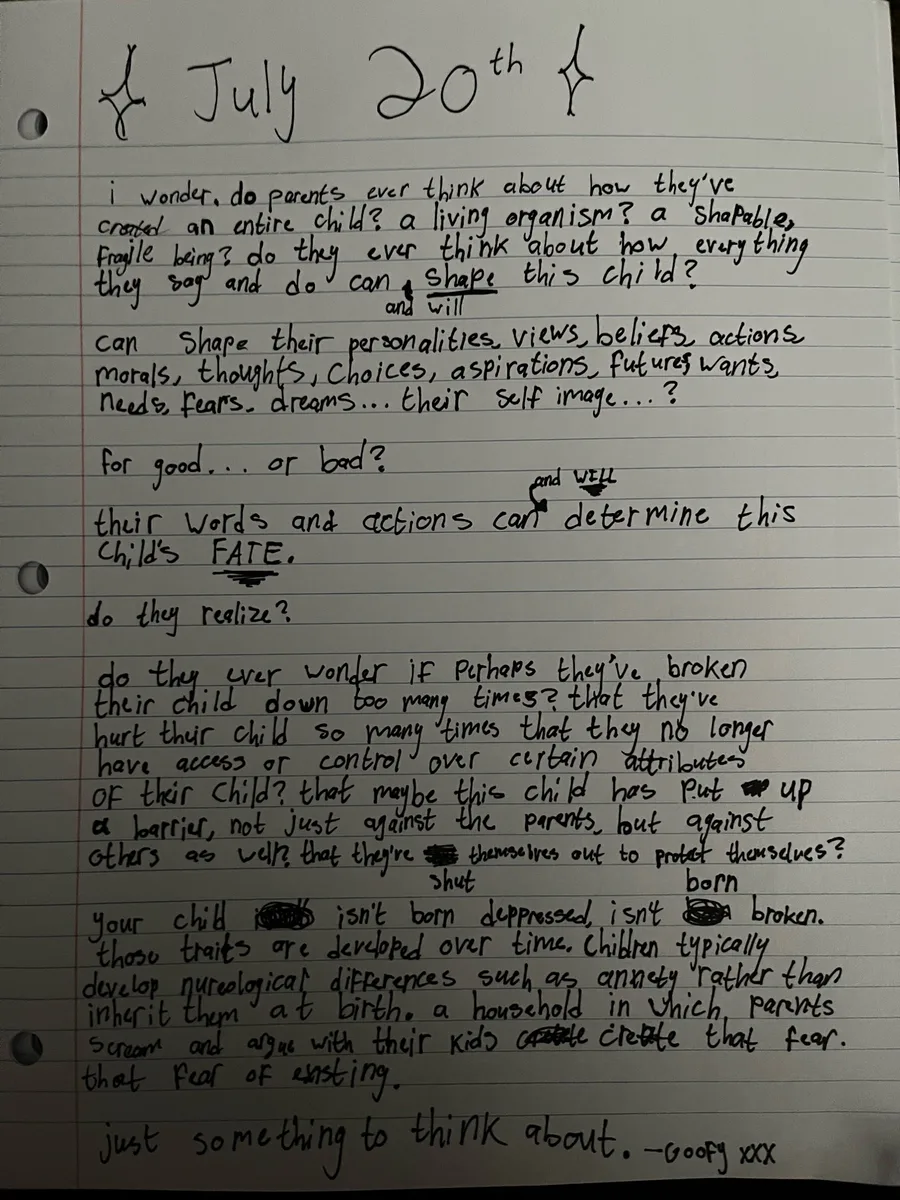 July 20th
i wonder. do parents ever think about how they've
created an entire child? a living organism? a shapable,
fragile being? do they ever think about how everything
they say and do can shape this child?
and will
can shape their personalities, views, beliefs, actions,
morals, thoughts, choices, aspirations, futures, wants,
needs, fears, dreams... their self image...?
for good... or bad?
and WILL
their words and actions can determine this
child's FATE.
do they realize?
do they ever wonder if perhaps they've broken
their child down too many times? that they've
hurt their child so many times that they no longer
have access or control over certain attributes
of their child? that maybe this child has put up
a barrier, not just against the parents, but against
others as well? that they're themselves out to protect themselves?
shut born
your child isn't born deppressed, isn't broken.
those traits are developed over time. children typically
develop nureological differences such as anxiety rather than
inherit them at birth. a household in which parents
scream and argue with their kids create that fear.
that fear of existing.
just something to think about. -Goofy xxx